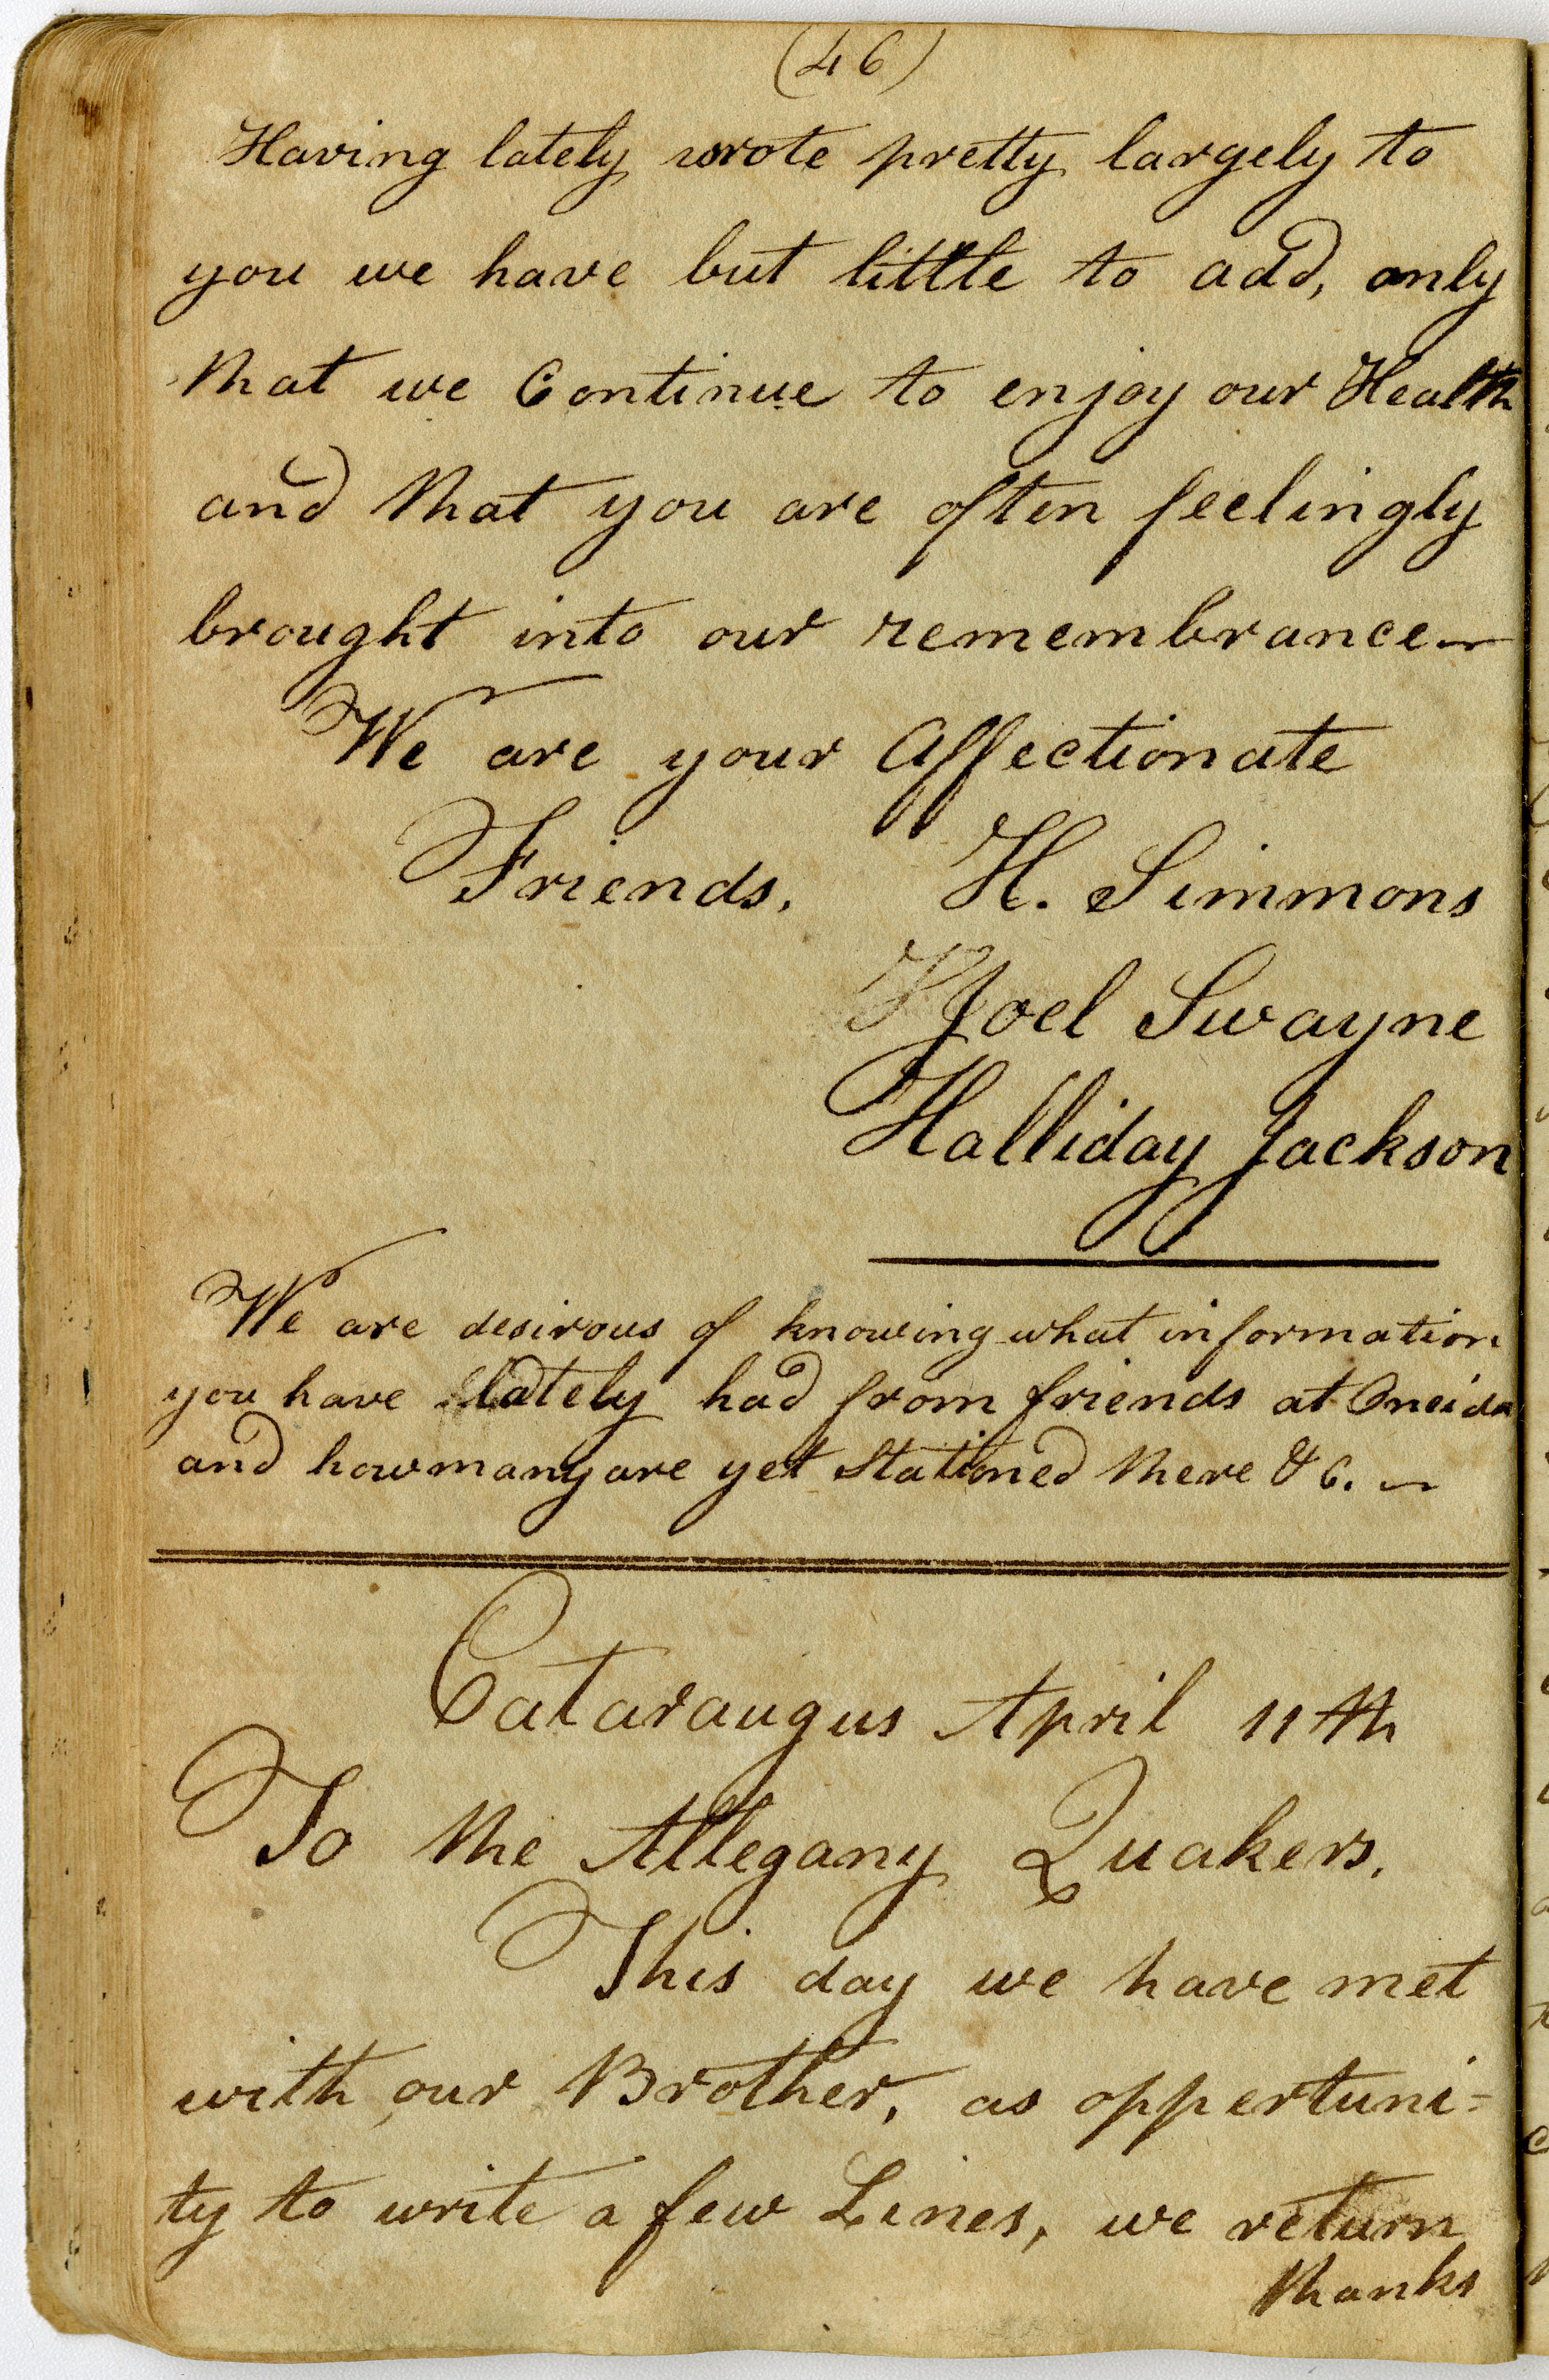 (46)
Having lately wrote pretty largely to
you we have but little to add, only
that we Continue to enjoy our Health
and that you are often feelingly
brought into our remembrance
We are your Affectionate
Friends. H. Simmons
Joel Swayne
Halliday Jackson
We are desirous of knowing what information
you have lately had from friends at Oneida
and how many are yet Stationed there &c.
Cataraugus April 11th
To the Allegany Quakers.
This day we have met
with our Brother, as oppertuni=
ty to write a few Lines, we return
thanks